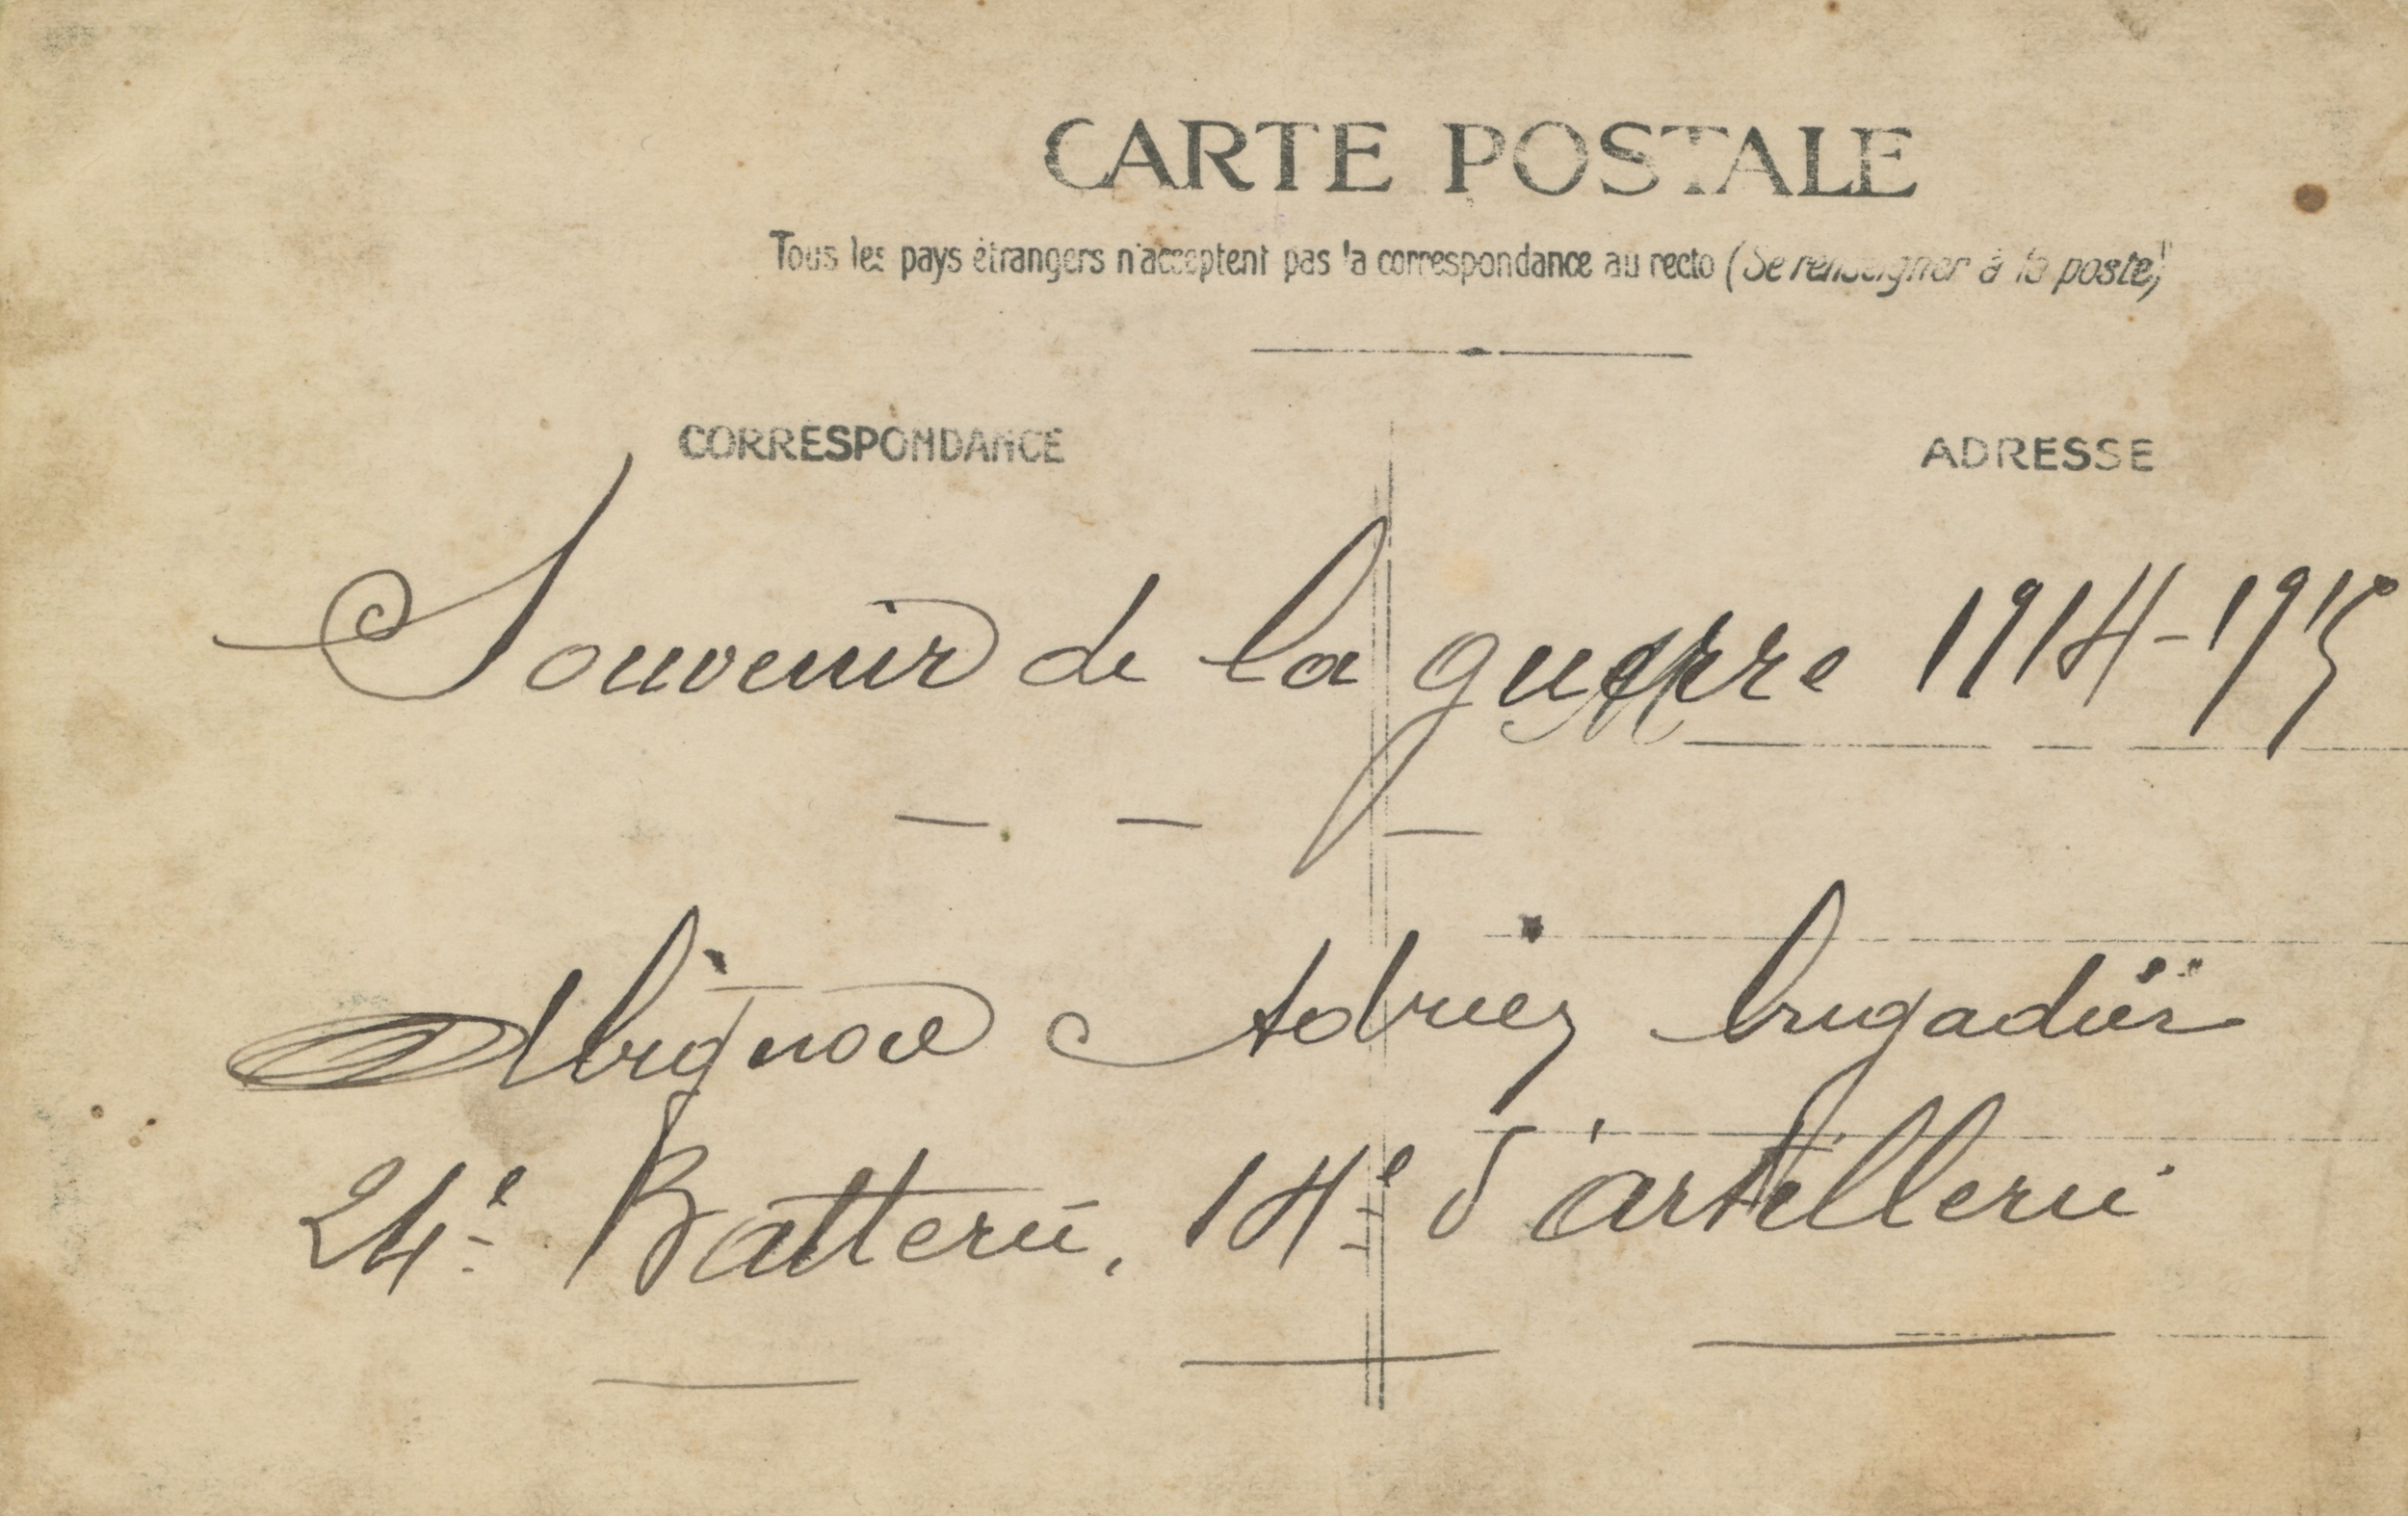 CARTE POSTALE
Tous les pays étrangers n'acceptent pas la correspondance au recto (Se renseigner à la poste)
CORRESPONDANCE
ADRESSE
Souvenir de la guerre 1914-1915
Adrien brigadier
24e Batterie, 14e d'artillerie